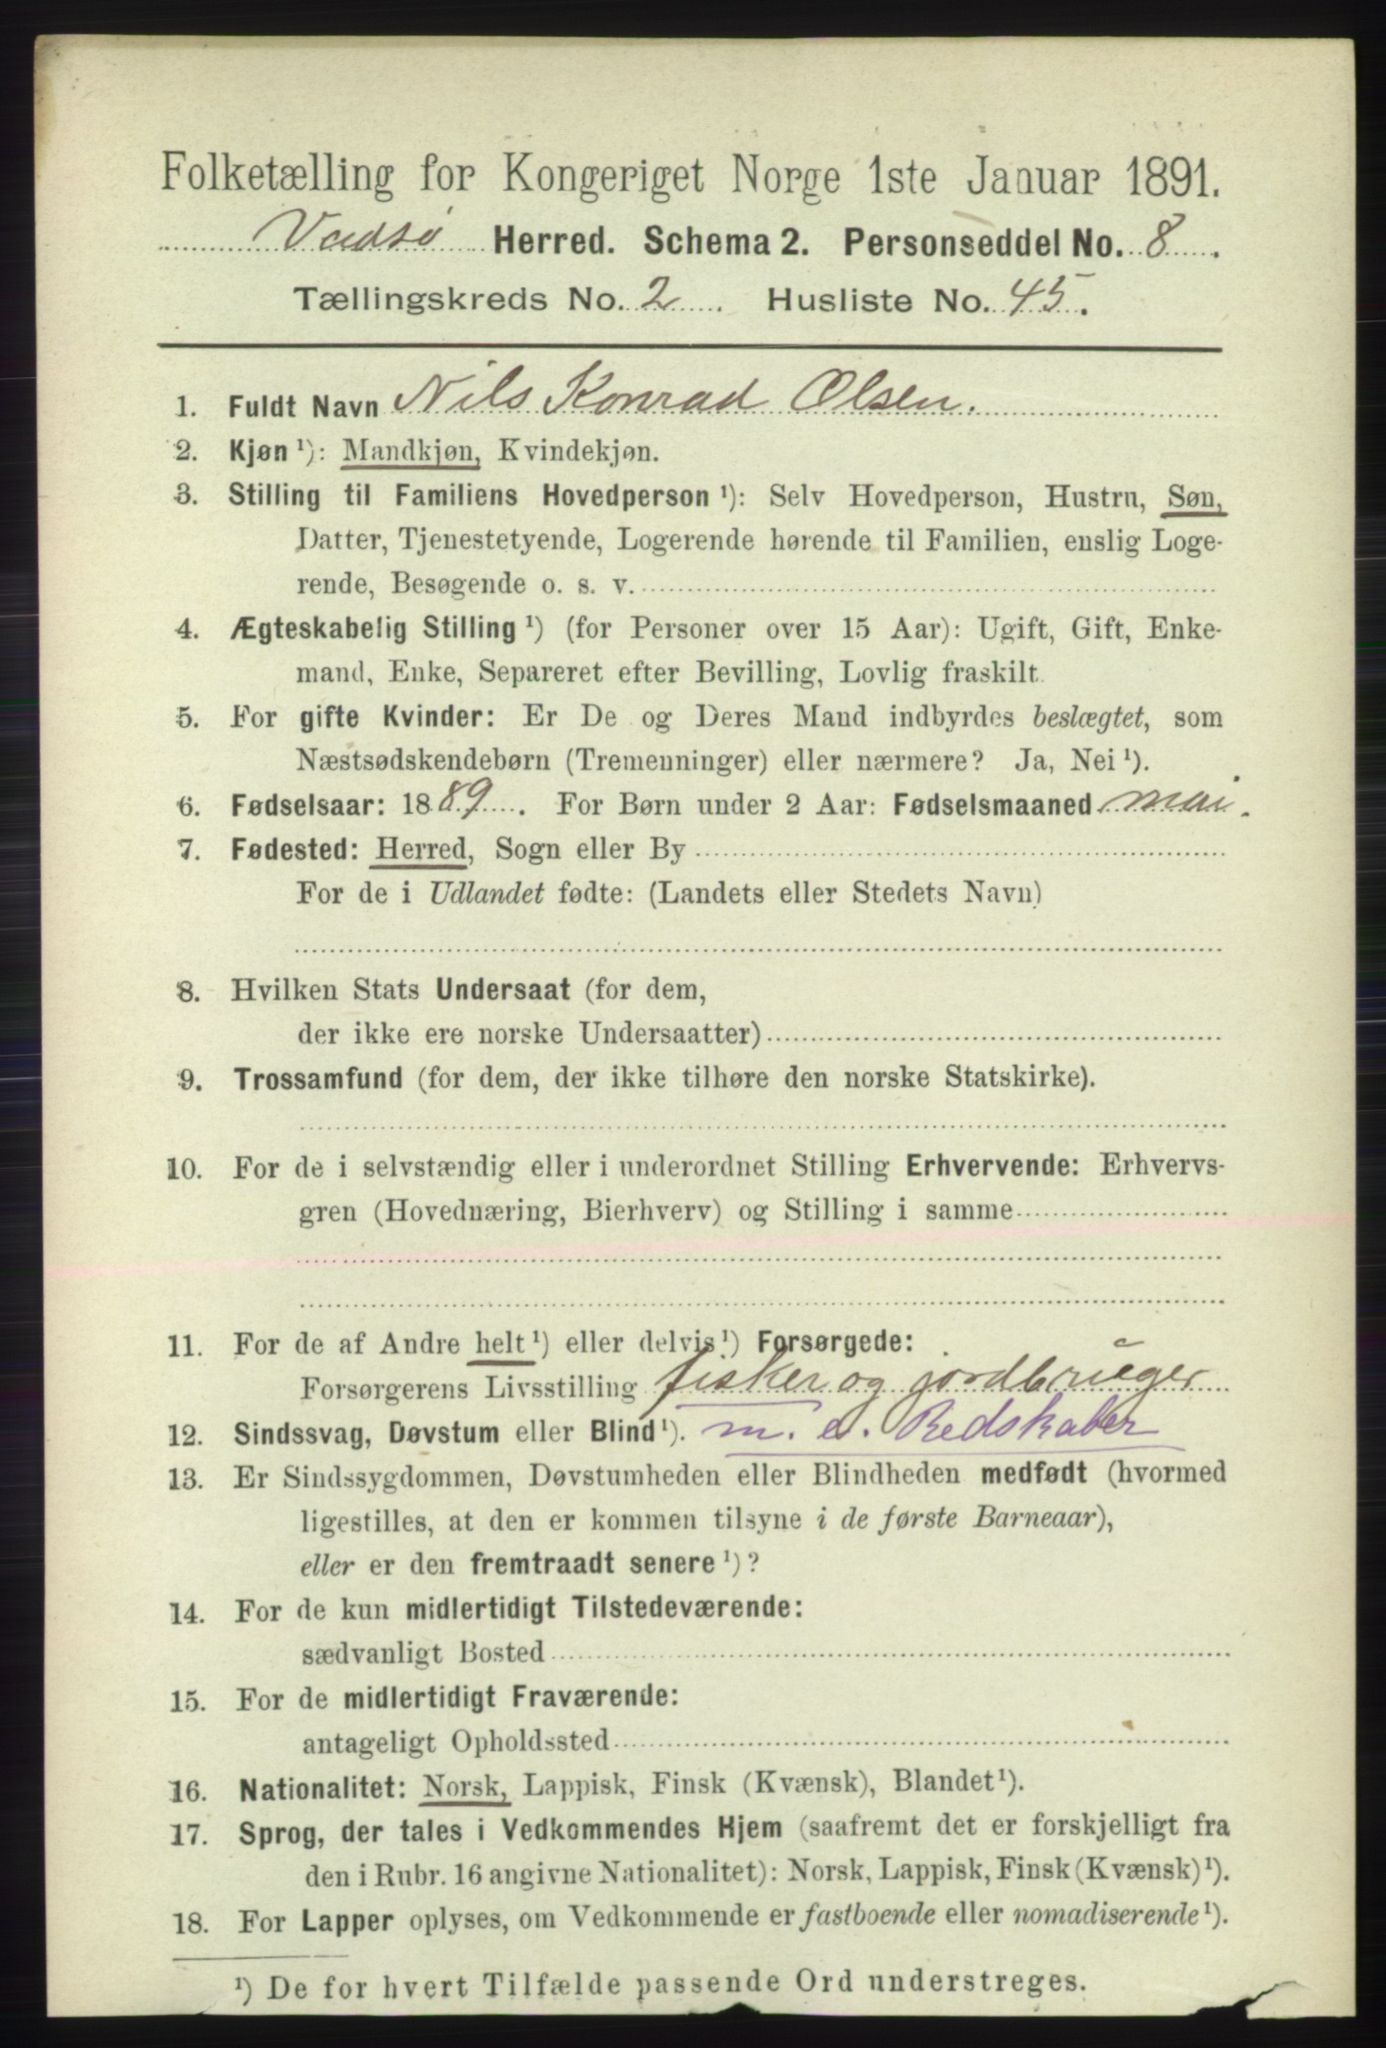 Folketælling for Kongeriget Norge 1ste Januar 1891.
Vadsø Herred. Schema 2. Personseddel No. 8.
Tællingskreds No. 2. Husliste No. 45.
1. Fuldt Navn Nils Konrad Olsen.
2. Kjøn ¹): Mandkjøn, Kvindekjøn.
3. Stilling til Familiens Hovedperson ¹): Selv Hovedperson, Hustru, Søn,
Datter, Tjenestetyende, Logerende hørende til Familien, enslig Loge-
rende, Besøgende o. s. v.
4. Ægteskabelig Stilling ¹) (for Personer over 15 Aar): Ugift, Gift, Enke-
mand, Enke, Separeret efter Bevilling, Lovlig fraskilt.
5. For gifte Kvinder: Er De og Deres Mand indbyrdes beslægtet, som
Næstsødskendebørn (Tremenninger) eller nærmere? Ja, Nei ¹).
6. Fødselsaar: 1889. For Børn under 2 Aar: Fødselsmaaned mai.
7. Fødested: Herred, Sogn eller By
For de i Udlandet fødte: (Landets eller Stedets Navn)
8. Hvilken Stats Undersaat (for dem,
der ikke ere norske Undersaatter)
9. Trossamfund (for dem, der ikke tilhøre den norske Statskirke).
10. For de i selvstændig eller i underordnet Stilling Erhvervende: Erhvervs-
gren (Hovednæring, Bierhverv) og Stilling i samme
11. For de af Andre helt ¹) eller delvis ¹) Forsørgede:
Forsørgerens Livsstilling fisker og jordbruger
12. Sindssvag, Døvstum eller Blind ¹). m. e. Redskaber
13. Er Sindssygdommen, Døvstumheden eller Blindheden medfødt (hvormed
ligestilles, at den er kommen tilsyne i de første Barneaar),
eller er den fremtraadt senere ¹)?
14. For de kun midlertidigt Tilstedeværende:
sædvanligt Bosted
15. For de midlertidigt Fraværende:
antageligt Opholdssted
16. Nationalitet: Norsk, Lappisk, Finsk (Kvænsk), Blandet ¹).
17. Sprog, der tales i Vedkommendes Hjem (saafremt det er forskjelligt fra
den i Rubr. 16 angivne Nationalitet): Norsk, Lappisk, Finsk (Kvænsk) ¹).
18. For Lapper oplyses, om Vedkommende er fastboende eller nomadiserende ¹).
¹) De for hvert Tilfælde passende Ord understreges.